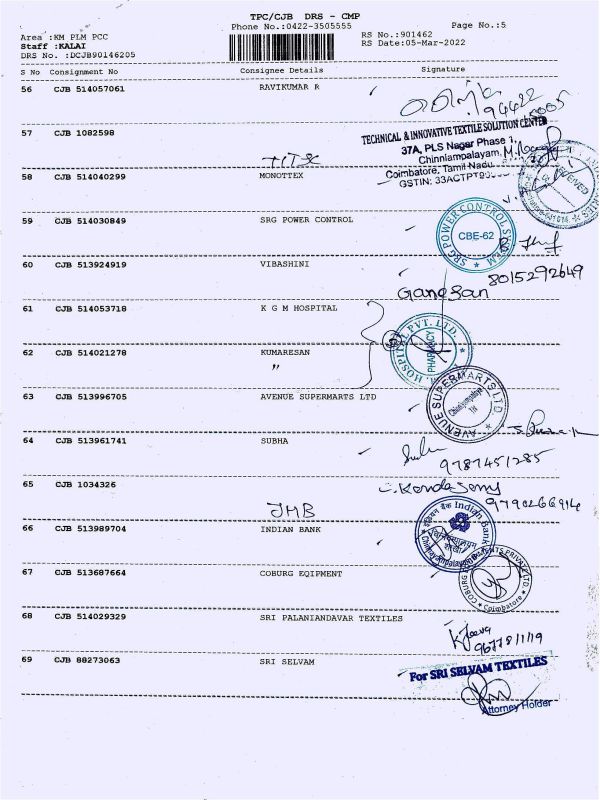 TPC/CJB DRS - CMP
Phone No.:0422-3505555
Page No.:5
Area :KM PLM PCC
Staff :KALAI
DRS No. :DCJB90146205
RS No.:901462
RS Date:05-Mar-2022
S No Consignment No Consignee Details Signature
56 CJB 514057061 RAVIKUMAR R
94422
57 CJB 1082598
TITSC
TECHNICAL & INNOVATIVE TEXTILE SOLUTION CENTER
37A, PLS Nagar Phase 1,
Chinniampalayam,
Coimbatore, Tamil Nadu
GSTIN: 33ACTPT90
58 CJB 514040299 MONOTTEX
RECEIVED
59 CJB 514030849 SRG POWER CONTROL
SRG POWER CONTROL SYSTEM
CBE-62
60 CJB 513924919 VIBASHINI
Ganesan
8015292649
61 CJB 514053718 K G M HOSPITAL
HOSPITAL PVT. LTD.
PHARMACY
62 CJB 514021278 KUMARESAN
"
63 CJB 513996705 AVENUE SUPERMARTS LTD
AVENUE SUPERMARTS LTD.
Chinniyampalayam
TN
64 CJB 513961741 SUBHA
9787451285
65 CJB 1034326
JMB
Kondasamy
9790266914
66 CJB 513989704 INDIAN BANK
इंडियन बैंक Indian Bank
67 CJB 513687664 COBURG EQIPMENT
COBURG EQUIPMENTS PRIVATE LTD
Coimbatore
68 CJB 514029329 SRI PALANIANDAVAR TEXTILES
K Jeeva
9677811119
69 CJB 88273063 SRI SELVAM
For SRI SELVAM TEXTILES
Attorney Holder